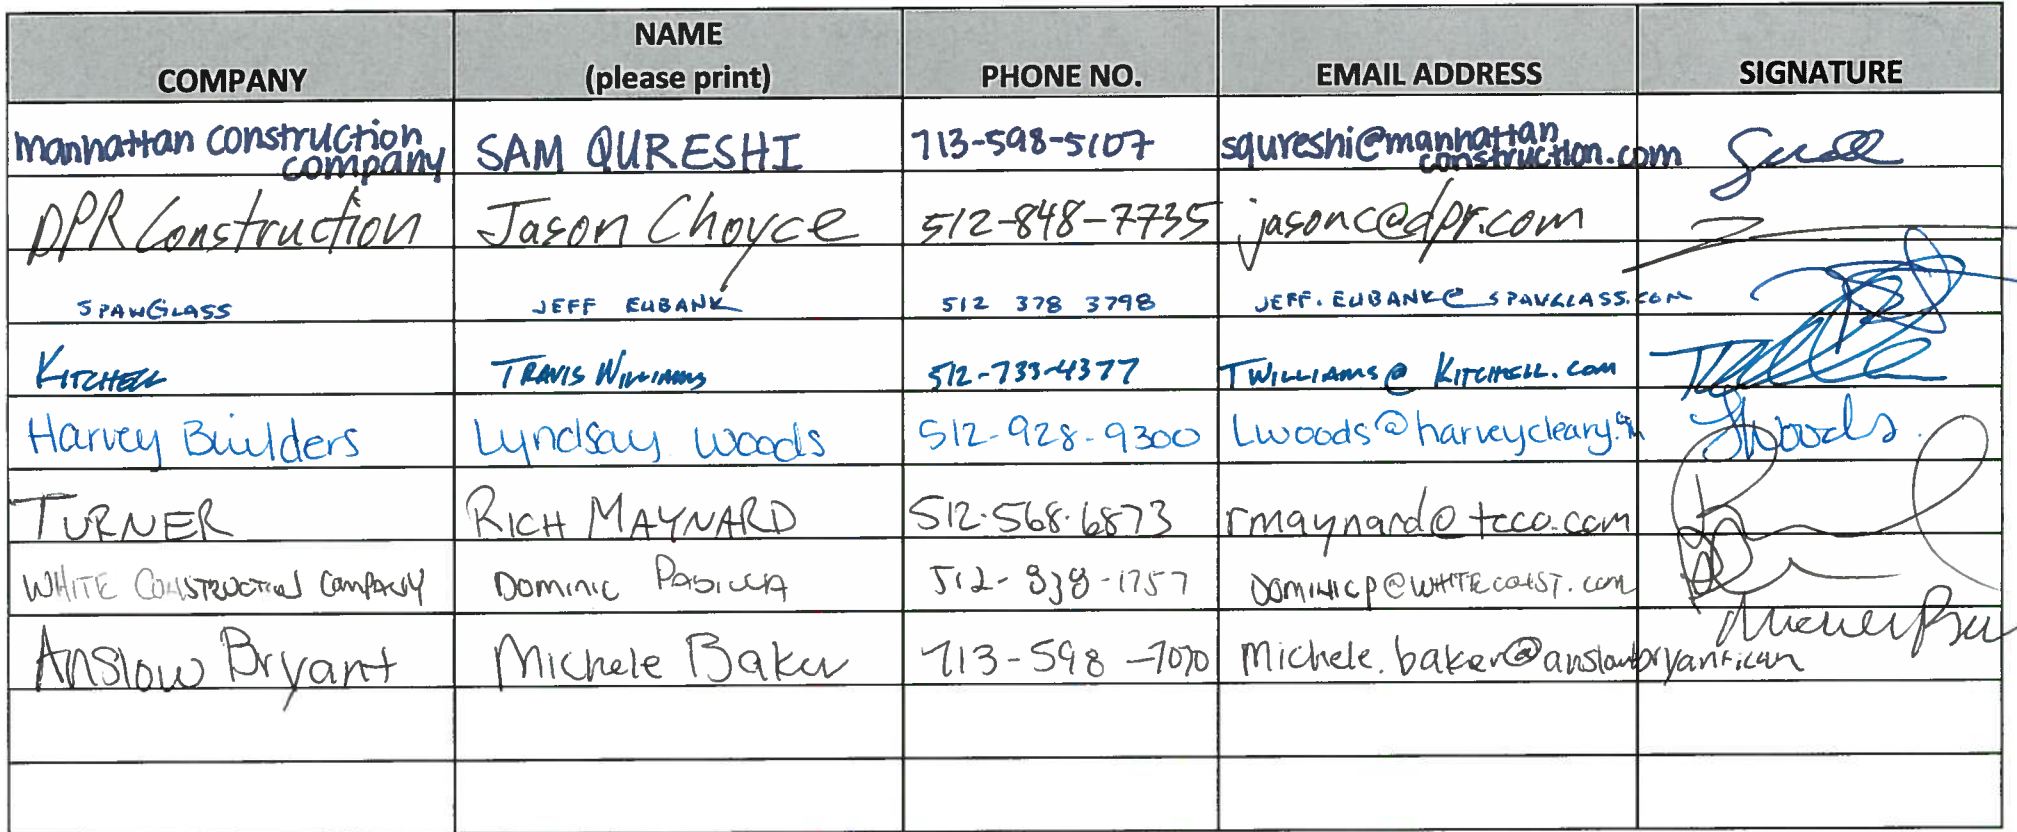 COMPANY NAME (please print) PHONE NO. EMAIL ADDRESS SIGNATURE
manhattan construction company SAM QURESHI 713-598-5107 squreshi@manhattanconstruction.com
DPR Construction Jason Choyce 512-848-7735 jasonc@dpr.com
SPAWGLASS JEFF EUBANK 512 378 3798 JEFF.EUBANK@SPAWGLASS.COM
KITCHELL TRAVIS WILLIAMS 512-733-4377 TWILLIAMS@KITCHELL.COM
Harvey Builders Lyndsay Woods 512-928-9300 Lwoods@harveycleary.com LWoods
TURNER RICH MAYNARD 512-568-6873 rmaynard@tcco.com
WHITE CONSTRUCTION COMPANY DOMINIC PADILLA 512-838-1757 DOMINICP@WHITECONST.COM
Anslow Bryant Michele Baker 713-598-7070 Michele.baker@anslowbryant.com